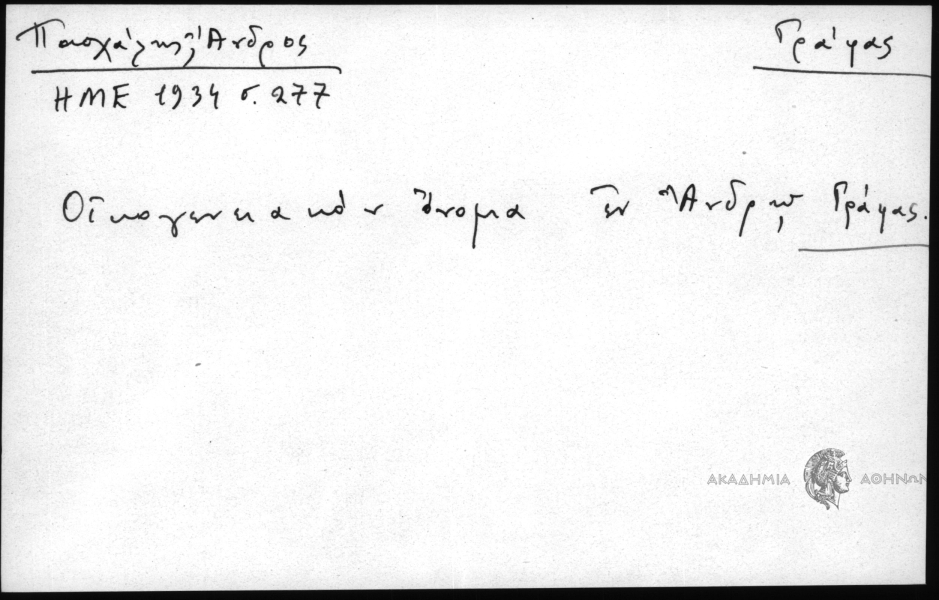 Πασχάλης, Ἄνδρος
Γράψας
ΗΜΕ 1934 σ. 277
Οἰκογενειακόν ὄνομα ἐν Ἄνδρῳ Γράψας.
ΑΚΑΔΗΜΙΑ ΑΘΗΝΩΝ